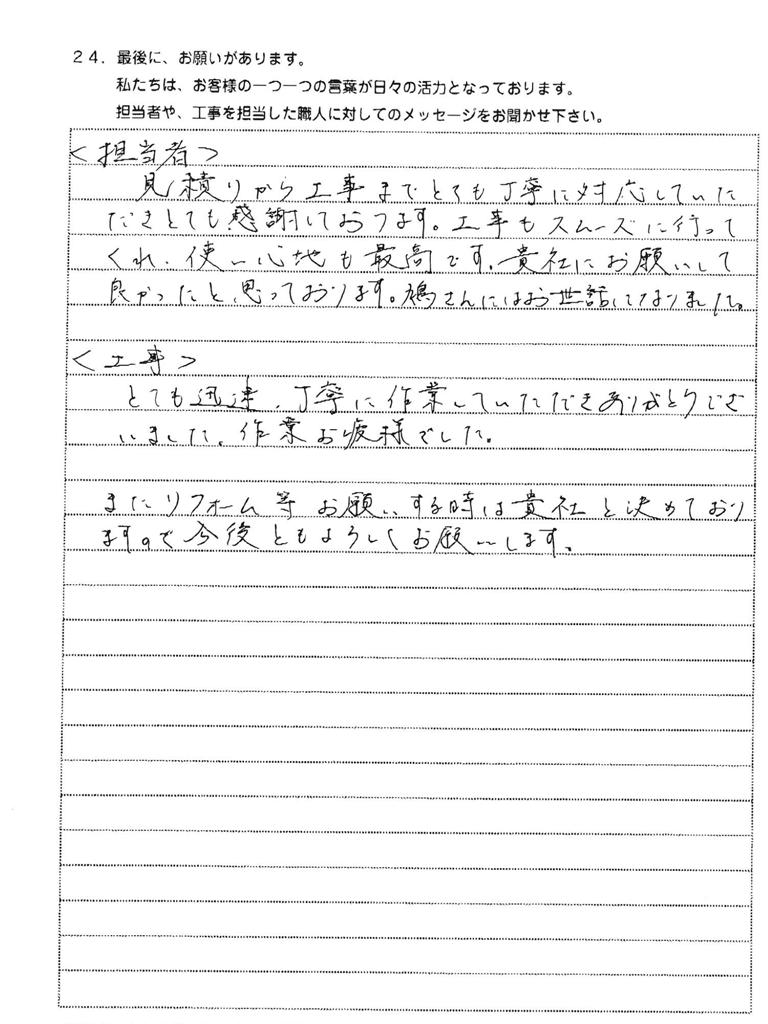 24．最後に、お願いがあります。
私たちは、お客様の一つ一つの言葉が日々の活力となっております。
担当者や、工事を担当した職人に対してのメッセージをお聞かせ下さい。
＜担当者＞
見積りから工事までとても丁寧に対応していた
だきとても感謝しております。工事もスムーズに行って
くれ、使い心地も最高です。貴社にお願いして
良かったと思っております。さんにはお世話になりました。
＜工事＞
とても迅速、丁寧に作業していただきありがとうござ
いました。作業お疲様でした。
またリフォーム等お願いする時は貴社と決めており
ますので今後ともよろしくお願いします。